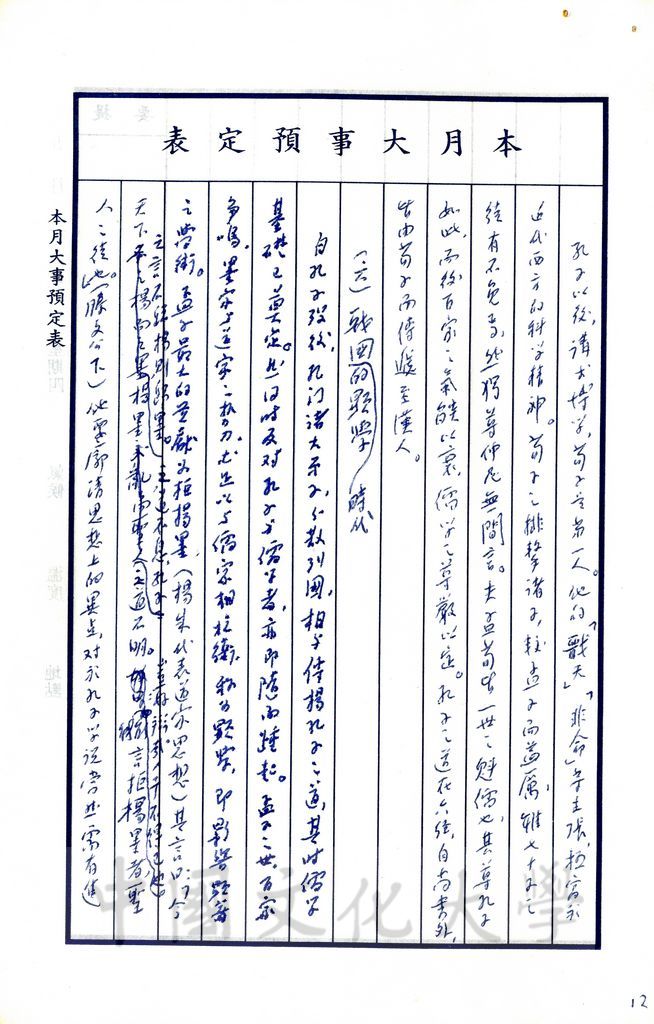 本月大事預定表
孔子以後,諸大儒家,荀子定為第一人。他的「戡天」「非命」等主張,極富於
近代西方的科學精神。荀子之排擊諸子,較孟子而益厲,雖七十子之
徒有不免焉,然獨尊仲尼無間言。夫孟荀皆一世之魁儒也,其尊孔子
如此,而後百家之氣燄以衰,儒學之尊嚴以定。孔子之道在六經,自尚書外,
皆由荀子而傳授至漢人。
(六)戰國的顯學時代
自孔子歿後,孔門諸大弟子,分散列國,相與傳揚孔子之道,其時儒學
基礎已奠定。然同時反對孔子與儒學者,亦即隨而踵起。孟子之世,百家
爭鳴,墨家與道家之勢力,尤足以與儒家相抗衡,稱為顯學,即影響頗著
之學術。孟子最大的貢獻為拒楊墨,(楊朱代表道家思想)其言曰:「今
天下之言不歸楊則歸墨。楊墨之道不息,孔子之道不明。豈好辯哉,予不得已也。能言拒楊墨者,聖
人之徒也。」(滕文公下)他要廓清思想上的異端,對於孔子學說當然需有進
本月大事預定表
中國文化大學
12